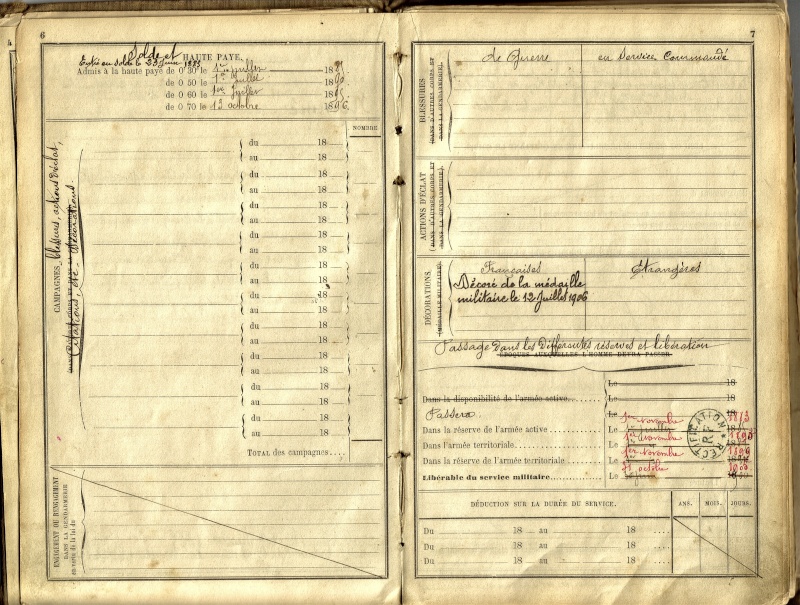 6
Solde et HAUTE PAYE.
Entré en solde le 23 Juin 1883
Admis à la haute paye de 0 30 le 1er juillet 18
de 0 50 le 1er Juillet 18
de 0 60 le 1er Juillet 18
de 0 70 le 13 octobre 1896.
NOMBRE
CAMPAGNES, blessures, actions d'éclat,
citations, etc Décorations.
du 18
au 18
du 18
au 18
du 18
au 18
du 18
au 18
du 18
au 18
du 18
au 18
du 18
au 18
du 18
au 18
du 18
au 18
du 18
au 18
TOTAL des campagnes....
ENGAGEMENT OU RENGAGEMENT
DANS LA GENDARMERIE
en vertu de la loi du
7
BLESSURES
(DANS D'AUTRES CORPS ET
DANS LA GENDARMERIE).
de Guerre en Service Commandé
ACTIONS D'ÉCLAT
(DANS D'AUTRES CORPS ET
DANS LA GENDARMERIE).
DÉCORATIONS
(MÉDAILLE MILITAIRE)
Françaises Étrangères
Décoré de la médaille
militaire le 12 Juillet 1906
Passage dans les différentes réserves et libération
ÉPOQUES AUXQUELLES L'HOMME DEVRA PASSER
Le 18
Dans la disponibilité de l'armée active Le 18
Passera Le 18
Dans la réserve de l'armée active Le 1er novembre
Dans l'armée territoriale Le 1er novembre
Dans la réserve de l'armée territoriale Le 1er novembre
Libérable du service militaire Le octobre
RECTIFICATION
RF
DÉDUCTION SUR LA DURÉE DU SERVICE. ANS. MOIS. JOURS.
Du 18 au 18
Du 18 au 18
Du 18 au 18